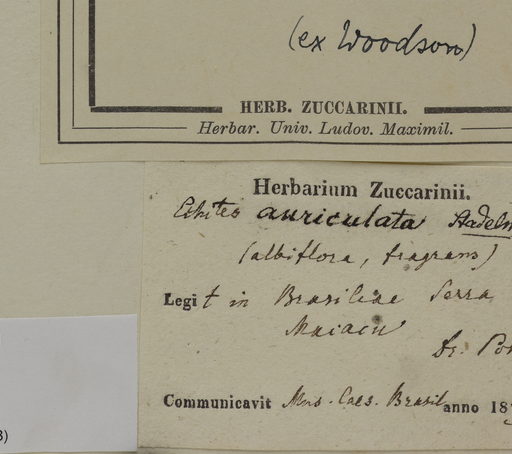 (ex Woodson)
HERB. ZUCCARINII.
Herbar. Univ. Ludov. Maximil.
Herbarium Zuccarinii.
Echites auriculata
(albiflora, fragrans)
Legit in Brasiliae Serra
Macacu
Dr. Po
Communicavit Mus. Caes. Brasil anno 18
3)